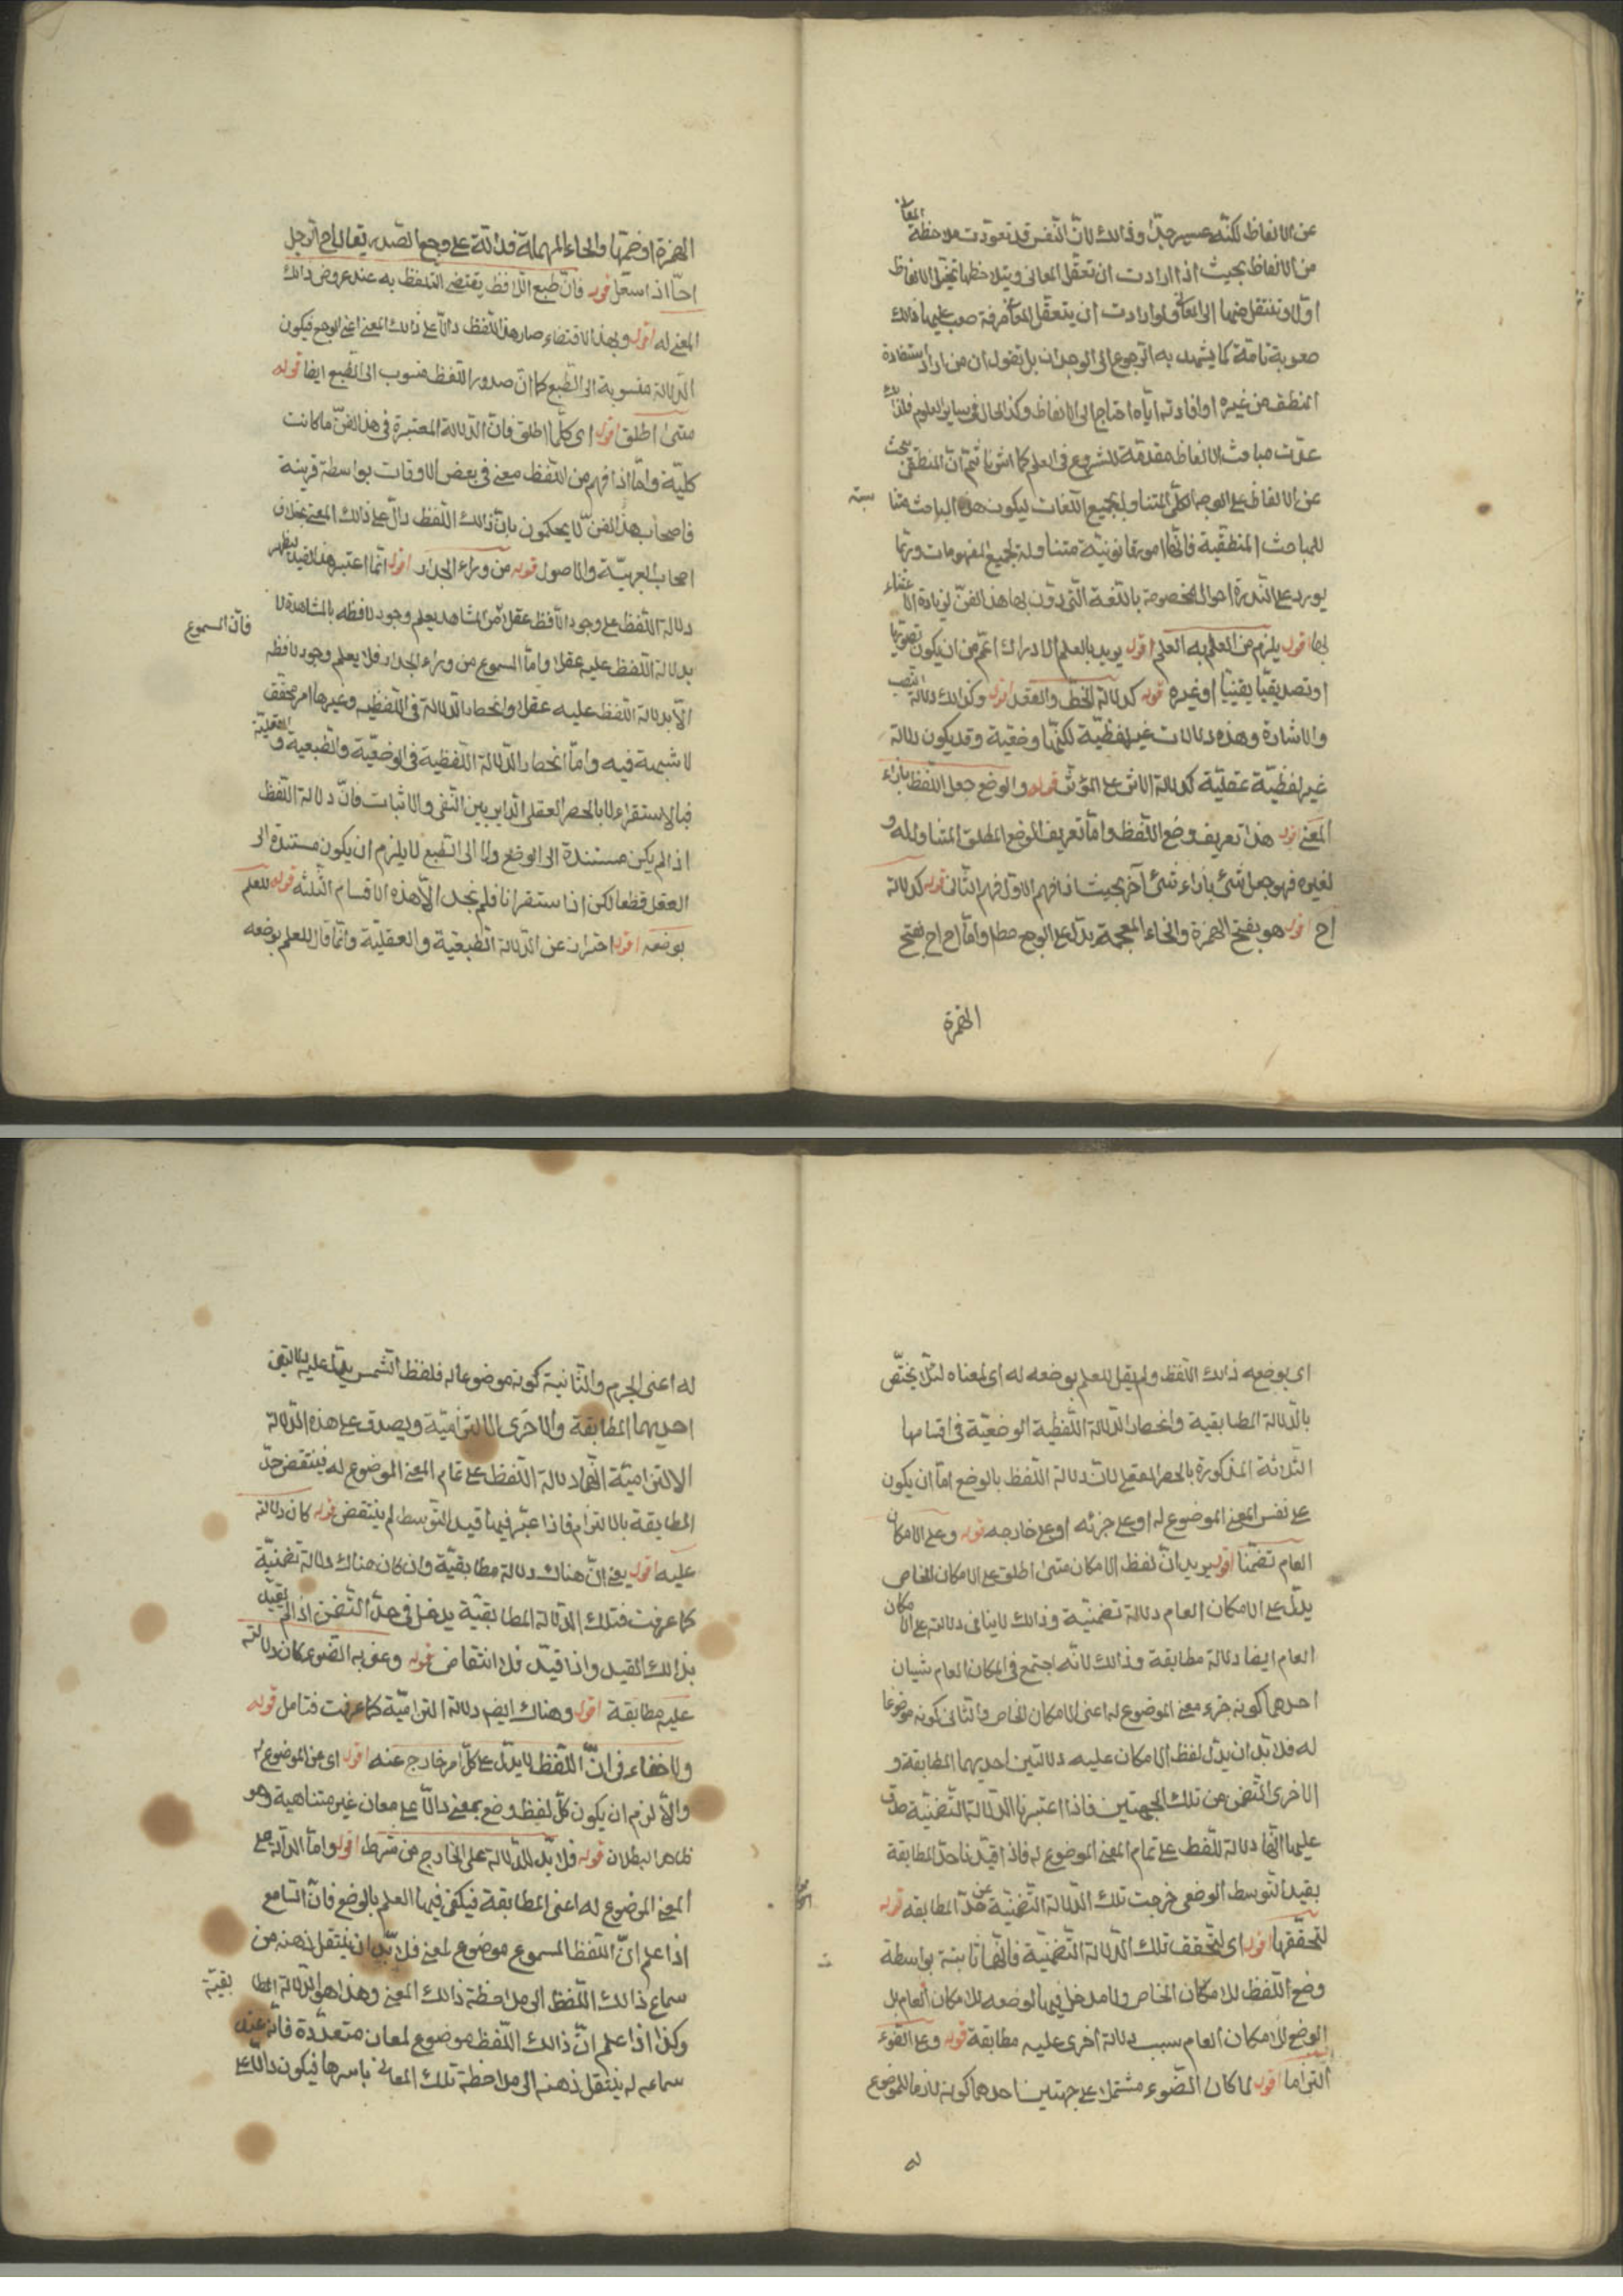 المعانى
عن الالفاظ لكنّه عسير جدّا وذالك لانّ النّفس قد تعوّدت ملاحظة
من الالفاظ بحيث اذا ارادت ان تعقّل المعانى ويتلاحظها تخيّل الالفاظ
اوّلا وتنتقل منها الى المعانى ولو ارادت ان يتعقّل المعانى صرفة صعب عليها ذالك
صعوبة تامّة كما يشهد به الرّجوع الى الوجدان بل نقول ان من اراد استفادة
المنطق من غيره او افادته ايّاه احتاج الى الالفاظ وكذا الحال فى ساير العلوم فلذالك
عدّت مباحث الالفاظ مقدّمة للشّروع فى العلم كما اشرنا ثمّ انّ المنطقى يبحث
عن الالفاظ على الوجه الكلّى المتناول لجميع اللّغات ليكون هذه المباحث مناسبة
للمباحث المنطقيّة فانّها امور قانونيّة متناولة لجميع المفهومات وربّما
يورد على النّدرة احوال مخصوصة باللّغة الّتى دوّن بها هذا الفنّ لزيادة الاعتناء
بها قوله يلزم من العلم به العلم اقول يريد بالعلم الادراك اعمّ من ان يكون تصوّريّا
او تصديقيّا يقينيّا او غيره قوله كدلالة الخطّ والعقد اقول وكذالك دلالة النّصب
والاشارة وهذه دلالات غير لفظيّة لكنّها وضعيّة وقد يكون دلالة
غير لفظيّة عقليّة كدلالة الاثر على المؤثّر قوله والوضع جعل اللّفظ بازاء
المعنى اقول هذا تعريف وضع اللّفظ وامّا تعريف الوضع المطلق المتناول له و
لغيره فهو جعل شئ بازاء شئ آخر بحيث اذا فهم الاوّل فهم الثّانى قوله كدلالة
اح اقول هو بفتح الهمزة والخاء المعجمة يدلّ على الوجع مطلقا وامّا اح اح بفتح
الهمزة
الهمزة او ضمّها والحاء المهملة فدالّة على وجع الصّدر يقال اح الرّجل
احّا اذا سعل قوله فانّ طبع اللّافظ يقتضى التلفّظ به عند عروض ذالك
المعنى له اقول وبهذا الاقتضاء صار هذا اللّفظ دالّا على ذالك المعنى اعنى الوجع فيكون
الدّلالة منسوبة الى الطّبع كما انّ صدور اللّفظ منسوب الى الطّبع ايضا قوله
متى اطلق اقول اى كلّما اطلق فانّ الدّلالة المعتبرة فى هذا الفنّ ما كانت
كليّة وامّا اذا فهم من اللّفظ معنى فى بعض الاوقات بواسطة قرينة
فاصحاب هذا الفنّ لا يحكمون بانّ ذالك اللّفظ دالّ على ذالك المعنى بخلاف
اصحاب العربيّة والاصول قوله من وراء الجدار اقول انّما اعتبر هذا القيد ليظهر
دلالة اللّفظ على وجود اللّافظ عقلا فى المشاهد يعلم وجود لافظه بالمشاهدة لا
فانّ المسموع
بدلالة اللّفظ عليه عقلا وامّا المسموع من وراء الجدار فلا يعلم وجود لافظه
الّا بدلالة اللّفظ عليه عقلا وانحصار الدّلالة فى اللّفظيّة وغيرها امر محقّق
لا شبهة فيه وامّا انحصار الدّلالة اللّفظيّة فى الوضعيّة والطّبعيّة والعقليّة
فبالاستقراء لا بالحصر العقلى الدّاير بين النّفى والاثبات فانّ دلالة اللّفظ
اذا لم يكن مستندة الى الوضع ولا الى الطّبع لا يلزم ان يكون مستندة الى
العقل قطعا لكن اذا استقرانا فلم نجد الّا هذه الاقسام الثّلثة قوله للعلم
بوضعه اقول احتراز عن الدّلالة الطّبعيّة والعقليّة وانّما قال للعلم بوضعه
اى بوضعه ذالك اللّفظ ولم يقل للعلم بوضعه له اى لمعناه لئلّا يختصّ
بالدّلالة المطابقية وانحصار الدّلالة اللّفظية الوضعيّة فى اقسامها
الثّلاثة المذكورة بالحصر العقلى لانّ دلالة اللّفظ بالوضع امّا ان يكون
على نفس المعنى الموضوع له او على جزئه او على خارجه قوله وعلى الامكان
العام تضمّنا اقول يريد انّ لفظ الامكان متى اطلق على الامكان الخاص
يدلّ على الامكان العام دلالة تضمّنيّة وذالك لا ينافى دلالته على الامكان
العام ايضا دلالة مطابقة وذالك لانّه اجتمع فى الامكان العام شيئان
احدهما كونه جزء معنى الموضوع له اعنى الامكان الخاص والثانى كونه موضوعا
له فلا بدّ ان يدلّ لفظ الامكان عليه دلالتين احديهما المطابقة و
الاخرى التّضمّن من تلك الجهتين فاذا اعتبرنا الدّلالة التّضمنيّة صدق
عليها انّها دلالة اللّفظ على تمام المعنى الموضوع له فاذا قيّدنا حدّ المطابقة
بقيد التّوسط الوضعى خرجت تلك الدّلالة التّضمنيّة عن حدّ المطابقة قوله
لتحقّقها اقول اى لتحقّق تلك الدّلالة التّضمنيّة فانّها ثابتة بواسطة
وضع اللّفظ للامكان الخاص ولا مدخل فيها لوضعه للامكان العام بل
الوضع للامكان العام سبب دلالة اخرى عليه مطابقة قوله وعلى الضّوء
التزاما اقول لما كان الضّوء مشتملا على جهتين احدهما كونه لازما للموضوع
له
له اعنى الجرم والثّانية كونه موضوعا له فلفظ الشّمس يدلّ عليه دلالتين
احديهما المطابقة والاخرى الالتزاميّة ويصدق على هذه الدّلالة
الالتزاميّة انّها دلالة اللّفظ على تمام المعنى الموضوع له فينتقض حدّ
المطابقة بالالتزام فاذا اعتبر فيها قيد التّوسط لم ينتقض قوله كان دلالته
عليه اقول يعنى انّ هناك دلالة مطابقيّة وان كان هناك دلالة تضمنيّة
كما عرفت فتلك الدّلالة المطابقيّة يدخل فى حدّ التّضمن اذا لم يقيّد
بذالك القيد واذا قيّد فلا انتقاض قوله وعنى به الضوء كان دلالته
عليه مطابقة اقول وهناك ايضم دلالة التزاميّة كما عرفت فتامل قوله
ولا خفاء فى انّ اللّفظ لا يدلّ على كلّ امر خارج عنه اقول اى عن الموضوع له
والّا لزم ان يكون كلّ لفظ وضع لمعنى دالّا على معان غير متناهية وهو
ظاهر البطلان قوله فلا بدّ للدّلالة على الخارج من شرط اقول وامّا الدّلالة على
المعنى الموضوع له اعنى المطابقة فيكفى فيها العلم بالوضع فانّ السّامع
اذا علم انّ اللّفظ المسموع موضوع لمعنى فلا بدّ ان ينتقل ذهنه من
سماع ذالك اللّفظ الى ملاحظة ذالك المعنى وهذا هو الدّلالة المطابقيّة
وكذا اذا علم انّ ذالك اللّفظ موضوع لمعان متعدّدة فانّه عند
سماعه له ينتقل ذهنه الى ملاحظة تلك المعانى باسرها فيكون دالّا على